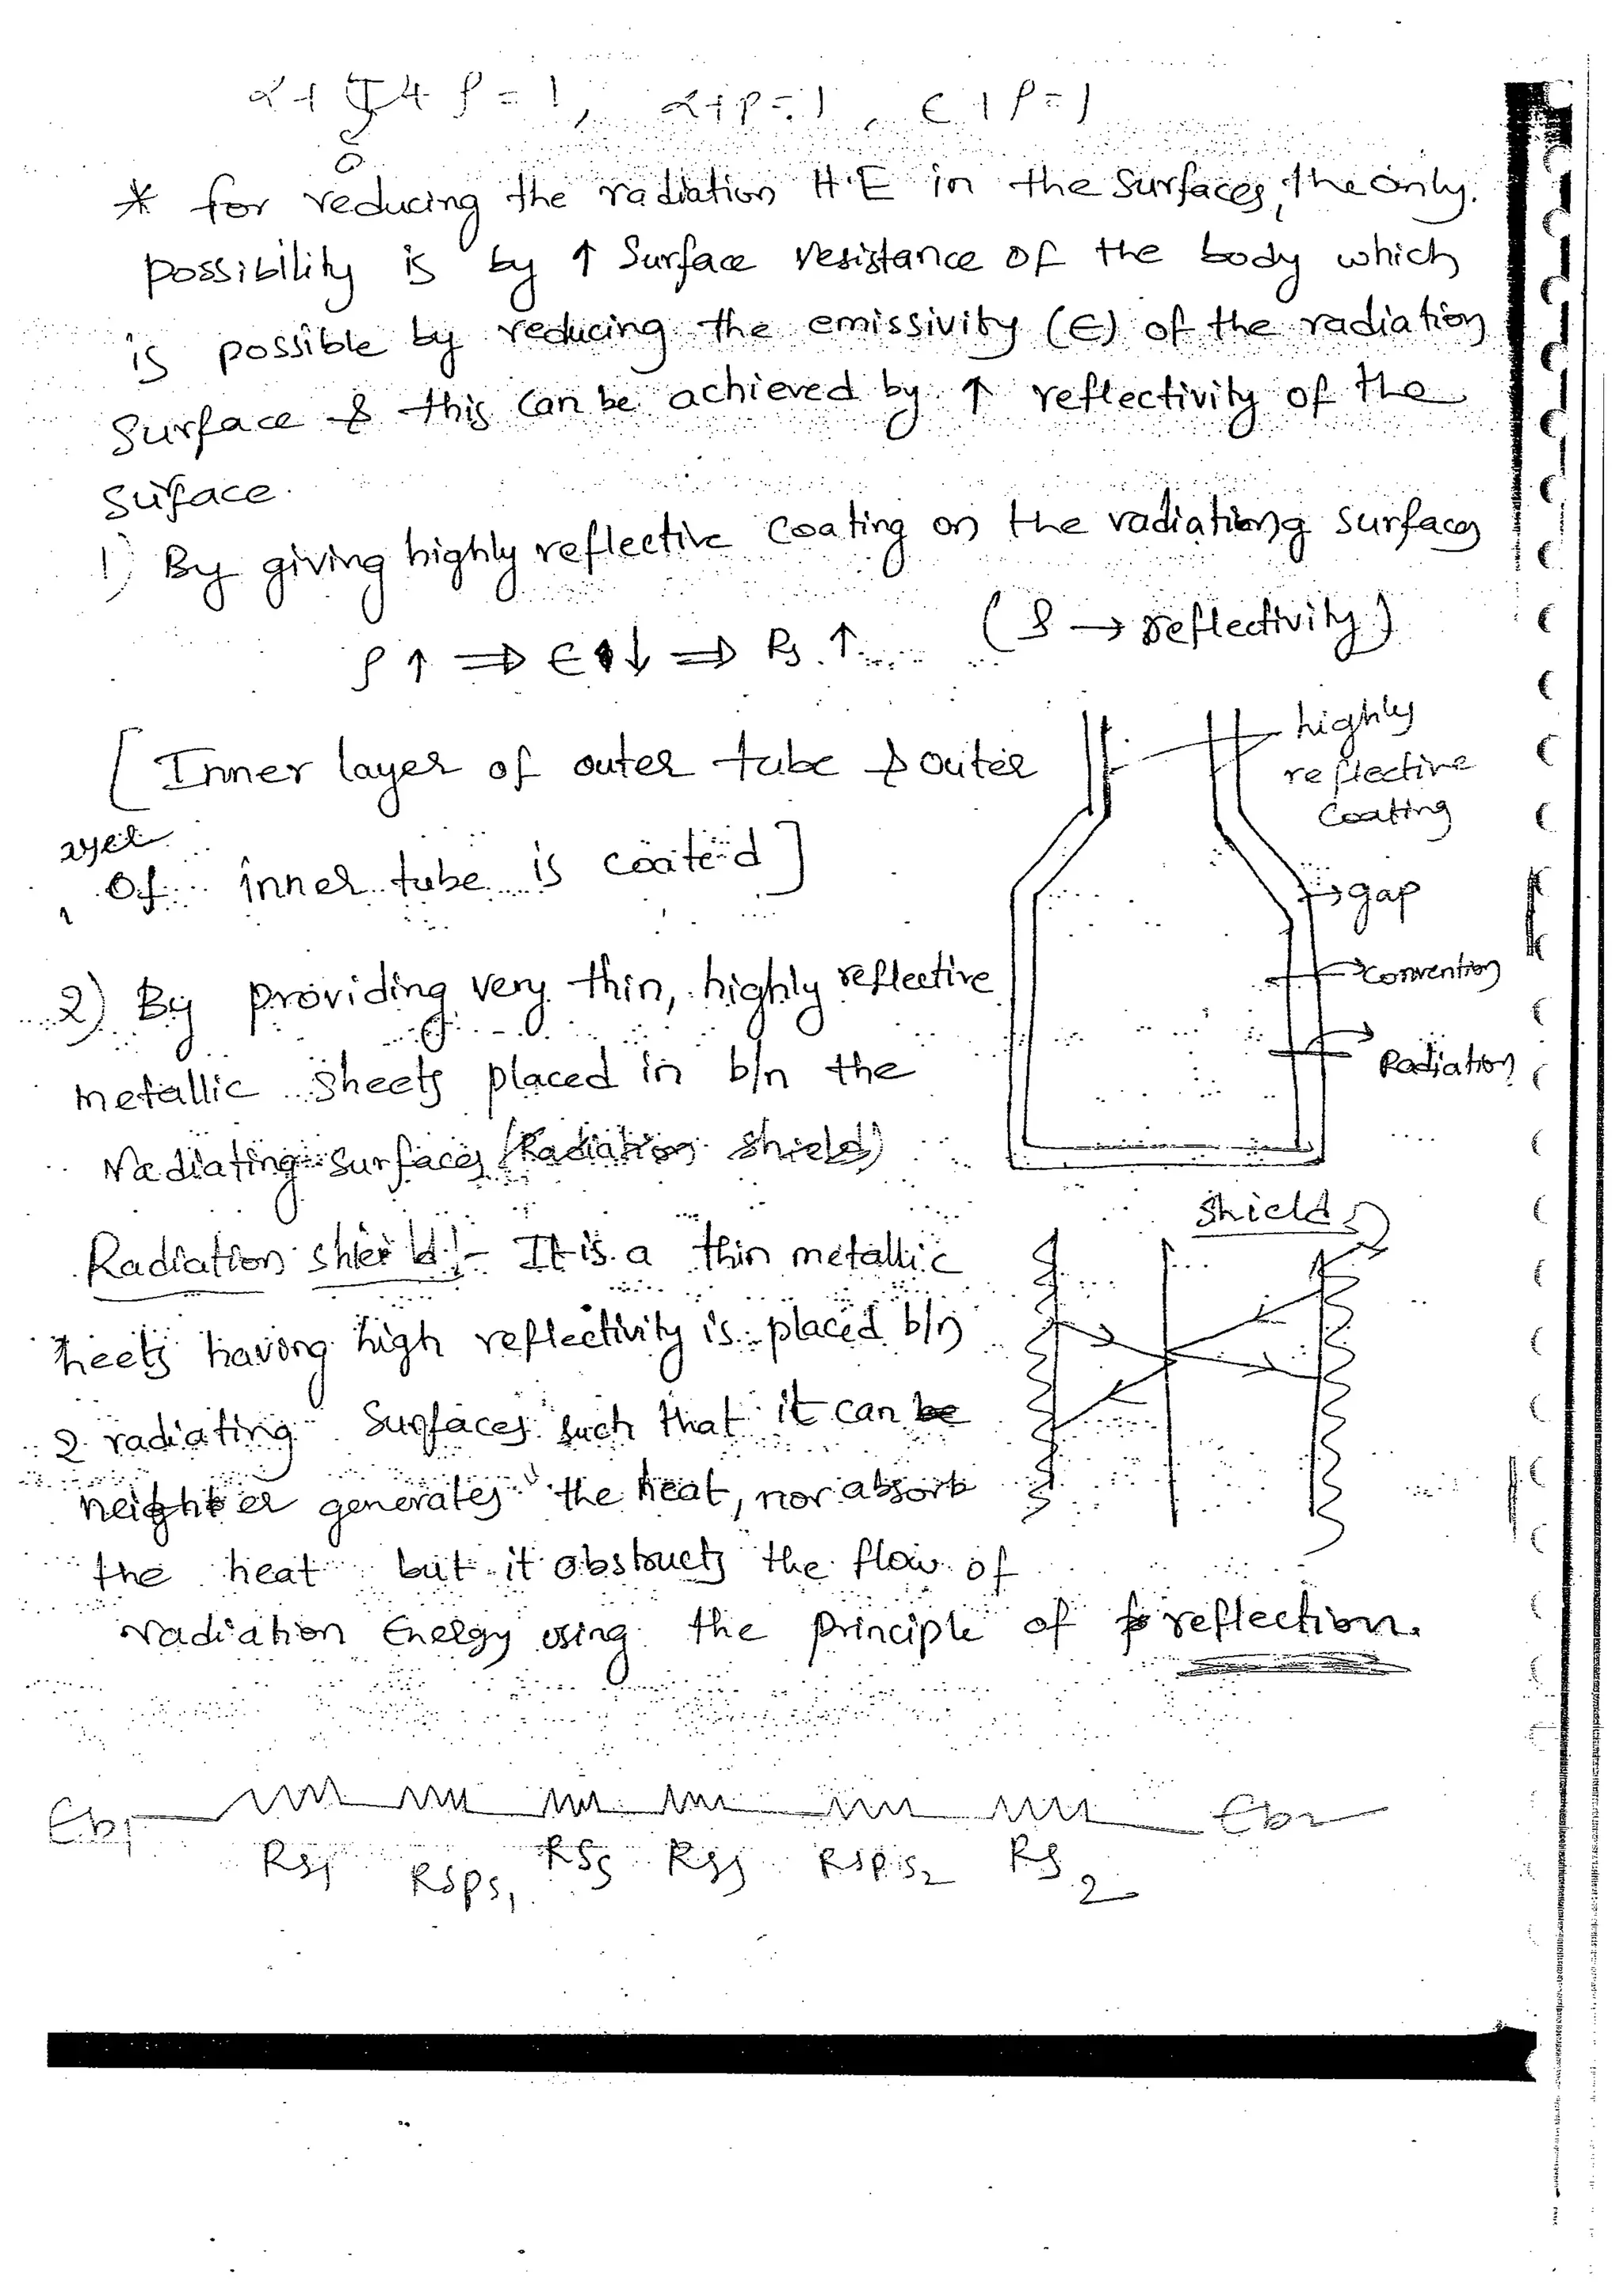 α + τ + ρ = 1, α + ρ = 1, ϵ + ρ = 1
0
* for reducing the radiation H.E in the Surfaces, the only.
possibility is by ↑ Surface resistance of the body which
is possible by reducing the emissivity (ϵ) of the radiation
Surface & this can be achieved by ↑ reflectivity of the
suface.
1) By giving highly reflective coating on the radiationg surfaces
ρ ↑ ⇒ ϵ ↓ ⇒ Rs ↑ (ρ → reflectivity)
highly
reflective
Coating
[Inner layer of outer tube & outer
ayer
of inner tube is coated]
gap
Convention
Radiation
2) By providing very thin, highly reflective
metallic sheets placed in b/n the
radiating surfaces (Radiation shields)
Shield
Radiation shield :- It is a thin metallic
heets having high reflectivity is placed b/n
2 radiating Surfaces such that it can be
neighter generates the heat, nor absorb
the heat but it obstructs the flow of
radiation Energy using the principle of reflection.
Eb1 Eb2
Rs1 Rsps1 RSs Rss Rsps2 Rs2